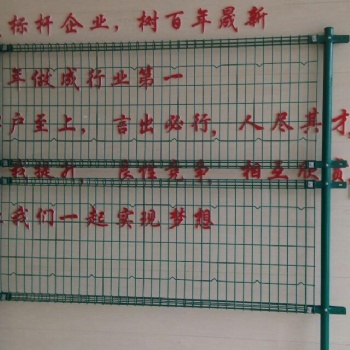 标杆企业，树百年晟新
年做成行业第一
户至上，言出必行，人尽其才
我提升，良性竞争 相互欣赏
我们一起实现梦想